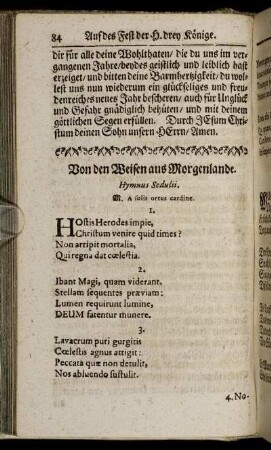 84 Auf des Fest der H. drey Könige.
dir für alle deine Wohlthaten/ die du uns im ver-
gangenen Jahre/ beydes geistlich und leiblich hast
erzeiget/ und bitten deine Barmhertzigkeit/ du wol-
lest uns nun wiederum ein glückseliges und freu-
denreiches neues Jahr bescheren/ auch für Unglück
und Gefahr gnädiglich behüten/ und mit deinem
göttlichen Segen erfüllen. Durch JEsum Chri-
stum deinen Sohn unsern HErrn/ Amen.
Von den Weisen aus Morgenlande.
Hymnus Sedulii.
M. A solis ortus cardine.
1.
HOstis Herodes impie,
Christum venire quid times?
Non arripit mortalia,
Qui regna dat cœlestia.
2.
Ibant Magi, quam viderant,
Stellam sequentes præviam:
Lumen requirunt lumine,
DEUM fatentur munere.
3.
Lavacrum puri gurgitis
Cœlestis agnus attigit:
Peccata quæ non detulit,
Nos abluendo sustulit.
4. No-